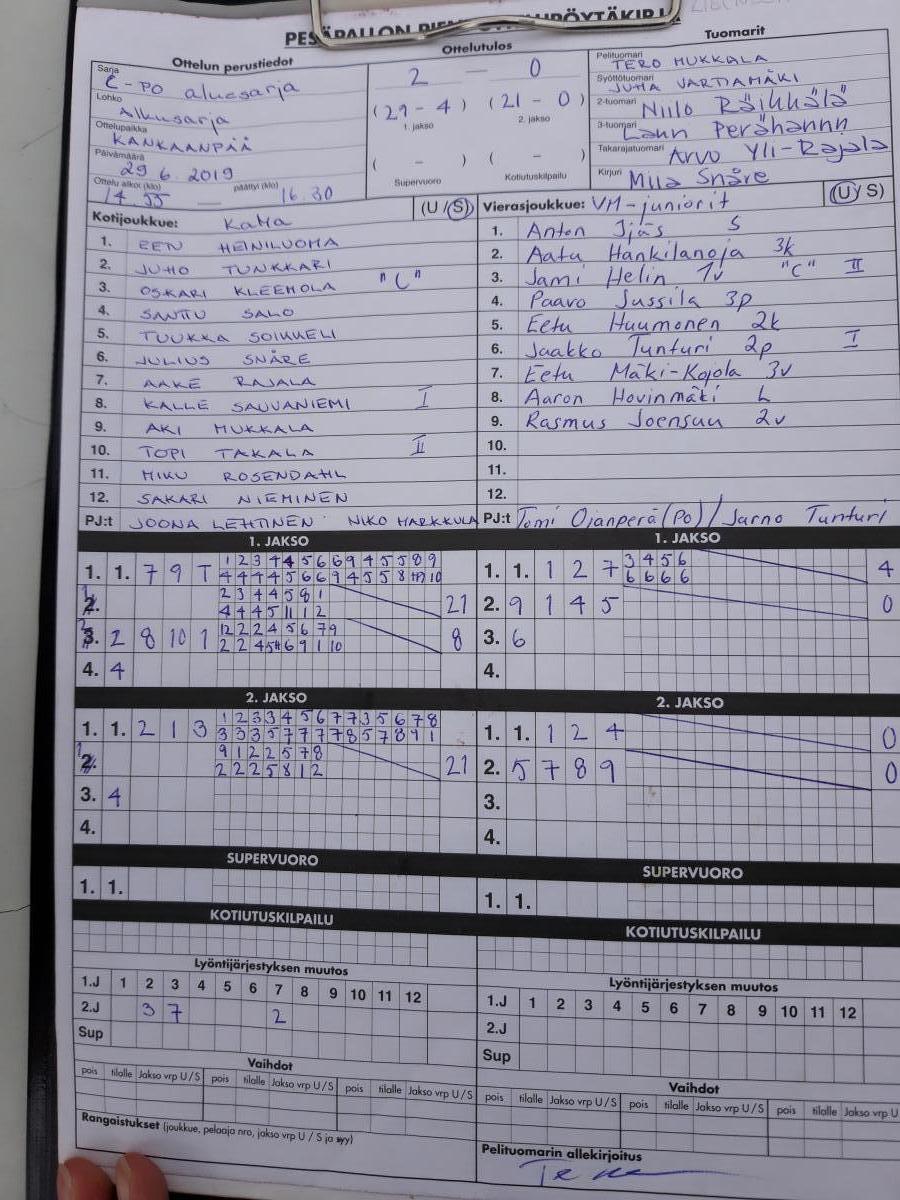 Ottelun perustiedot
Sarja C-PO aluesarja
Lohko Alkusarja
Ottelupaikka KANKAANPÄÄ
Päivämäärä 29.6.2019
Ottelu alkoi (klo) 14.55 — päättyi (klo) 16.30
Ottelutulos
2 — 0
(29 - 4) (21 - 0)
1. jakso 2. jakso
( - ) ( - )
Supervuoro Kotiutuskilpailu
Tuomarit
Pelituomari TERO MUKKALA
Syöttötuomari JUHA VARTIAMÄKI
2-tuomari Niilo Räikkälä
3-tuomari
Takarajatuomari Arvo Yli-Rajala
Kirjuri Miia Snåre
Kotijoukkue: KaMa (U/S)
1. EETU HEINILUOMA
2. JUHO TUNKKARI
3. OSKARI KLEEMOLA "C"
4. SANTTU SALO
5. TUUKKA SOIKKELI
6. JULIUS SNÅRE
7. AAKE RAJALA
8. KALLE SAUVANIEMI I
9. AKI MUKKALA
10. TOPI TAKALA II
11. MIKU ROSENDAHL
12. SAKARI NIEMINEN
PJ:t JOONA LEHTINEN NIKO HARKKULA
Vierasjoukkue: VM-juniorit (U/S)
1. Anton Ijäs S
2. Aatu Hankilanoja 3k
3. Jami Helin 1v "C" II
4. Paavo Jussila 3p
5. Eetu Huumonen 2k
6. Jaakko Tunturi 2p I
7. Eetu Mäki-Kojola 3v
8. Aaron Hovinmäki L
9. Rasmus Joensuu 2v
10.
11.
12.
PJ:t Tomi Ojanperä (PO) / Jarno Tunturi
1. JAKSO
1. 1. 7 9 T
21
2 8 10 1
8
4. 4
1. JAKSO
1. 1. 1 2 7 3 4 5 6
6 6 6 6
4
2. 9 1 4 5 0
3. 6
4.
2. JAKSO
1. 1. 2 1 3 1 2 3 3 4 5 6 7 7 3 5 6 7 8
9 1 2 2 5 7 8
2 2 2 5 8 1 2
21
3. 4
4.
2. JAKSO
1. 1. 1 2 4 0
2. 5 7 8 9 0
3.
4.
SUPERVUORO
1. 1.
SUPERVUORO
1. 1.
KOTIUTUSKILPAILU
KOTIUTUSKILPAILU
Lyöntijärjestyksen muutos
1.J 1 2 3 4 5 6 7 8 9 10 11 12
2.J 3 7 2
Sup
Lyöntijärjestyksen muutos
1.J 1 2 3 4 5 6 7 8 9 10 11 12
2.J
Sup
Vaihdot
pois tilalle Jakso vrp U/S pois tilalle Jakso vrp U/S pois tilalle Jakso vrp U/S
Vaihdot
pois tilalle Jakso vrp U/S pois tilalle Jakso vrp U/S pois tilalle Jakso vrp U
Rangaistukset (joukkue, pelaaja nro, jakso vrp U / S ja syy)
Pelituomarin allekirjoitus